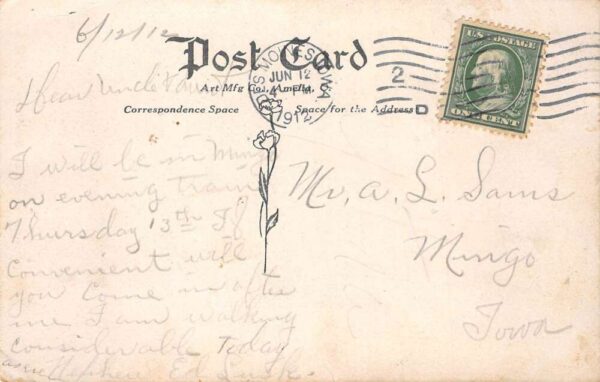 6/12/12
Post Card
Art Mfg Co., Amelia,
Correspondence Space
Space for the Address
DES MOINES, IOWA
JUN 12
1912
2
D
U.S. POSTAGE
ONE CENT
Dear Uncle
I will be in Mingo
on evening train
Thursday 13th If
Convenient will
you come in after
me I am walking
considerable Today
Nephew Ed
Mr. A. L. Sams
Mingo
Iowa